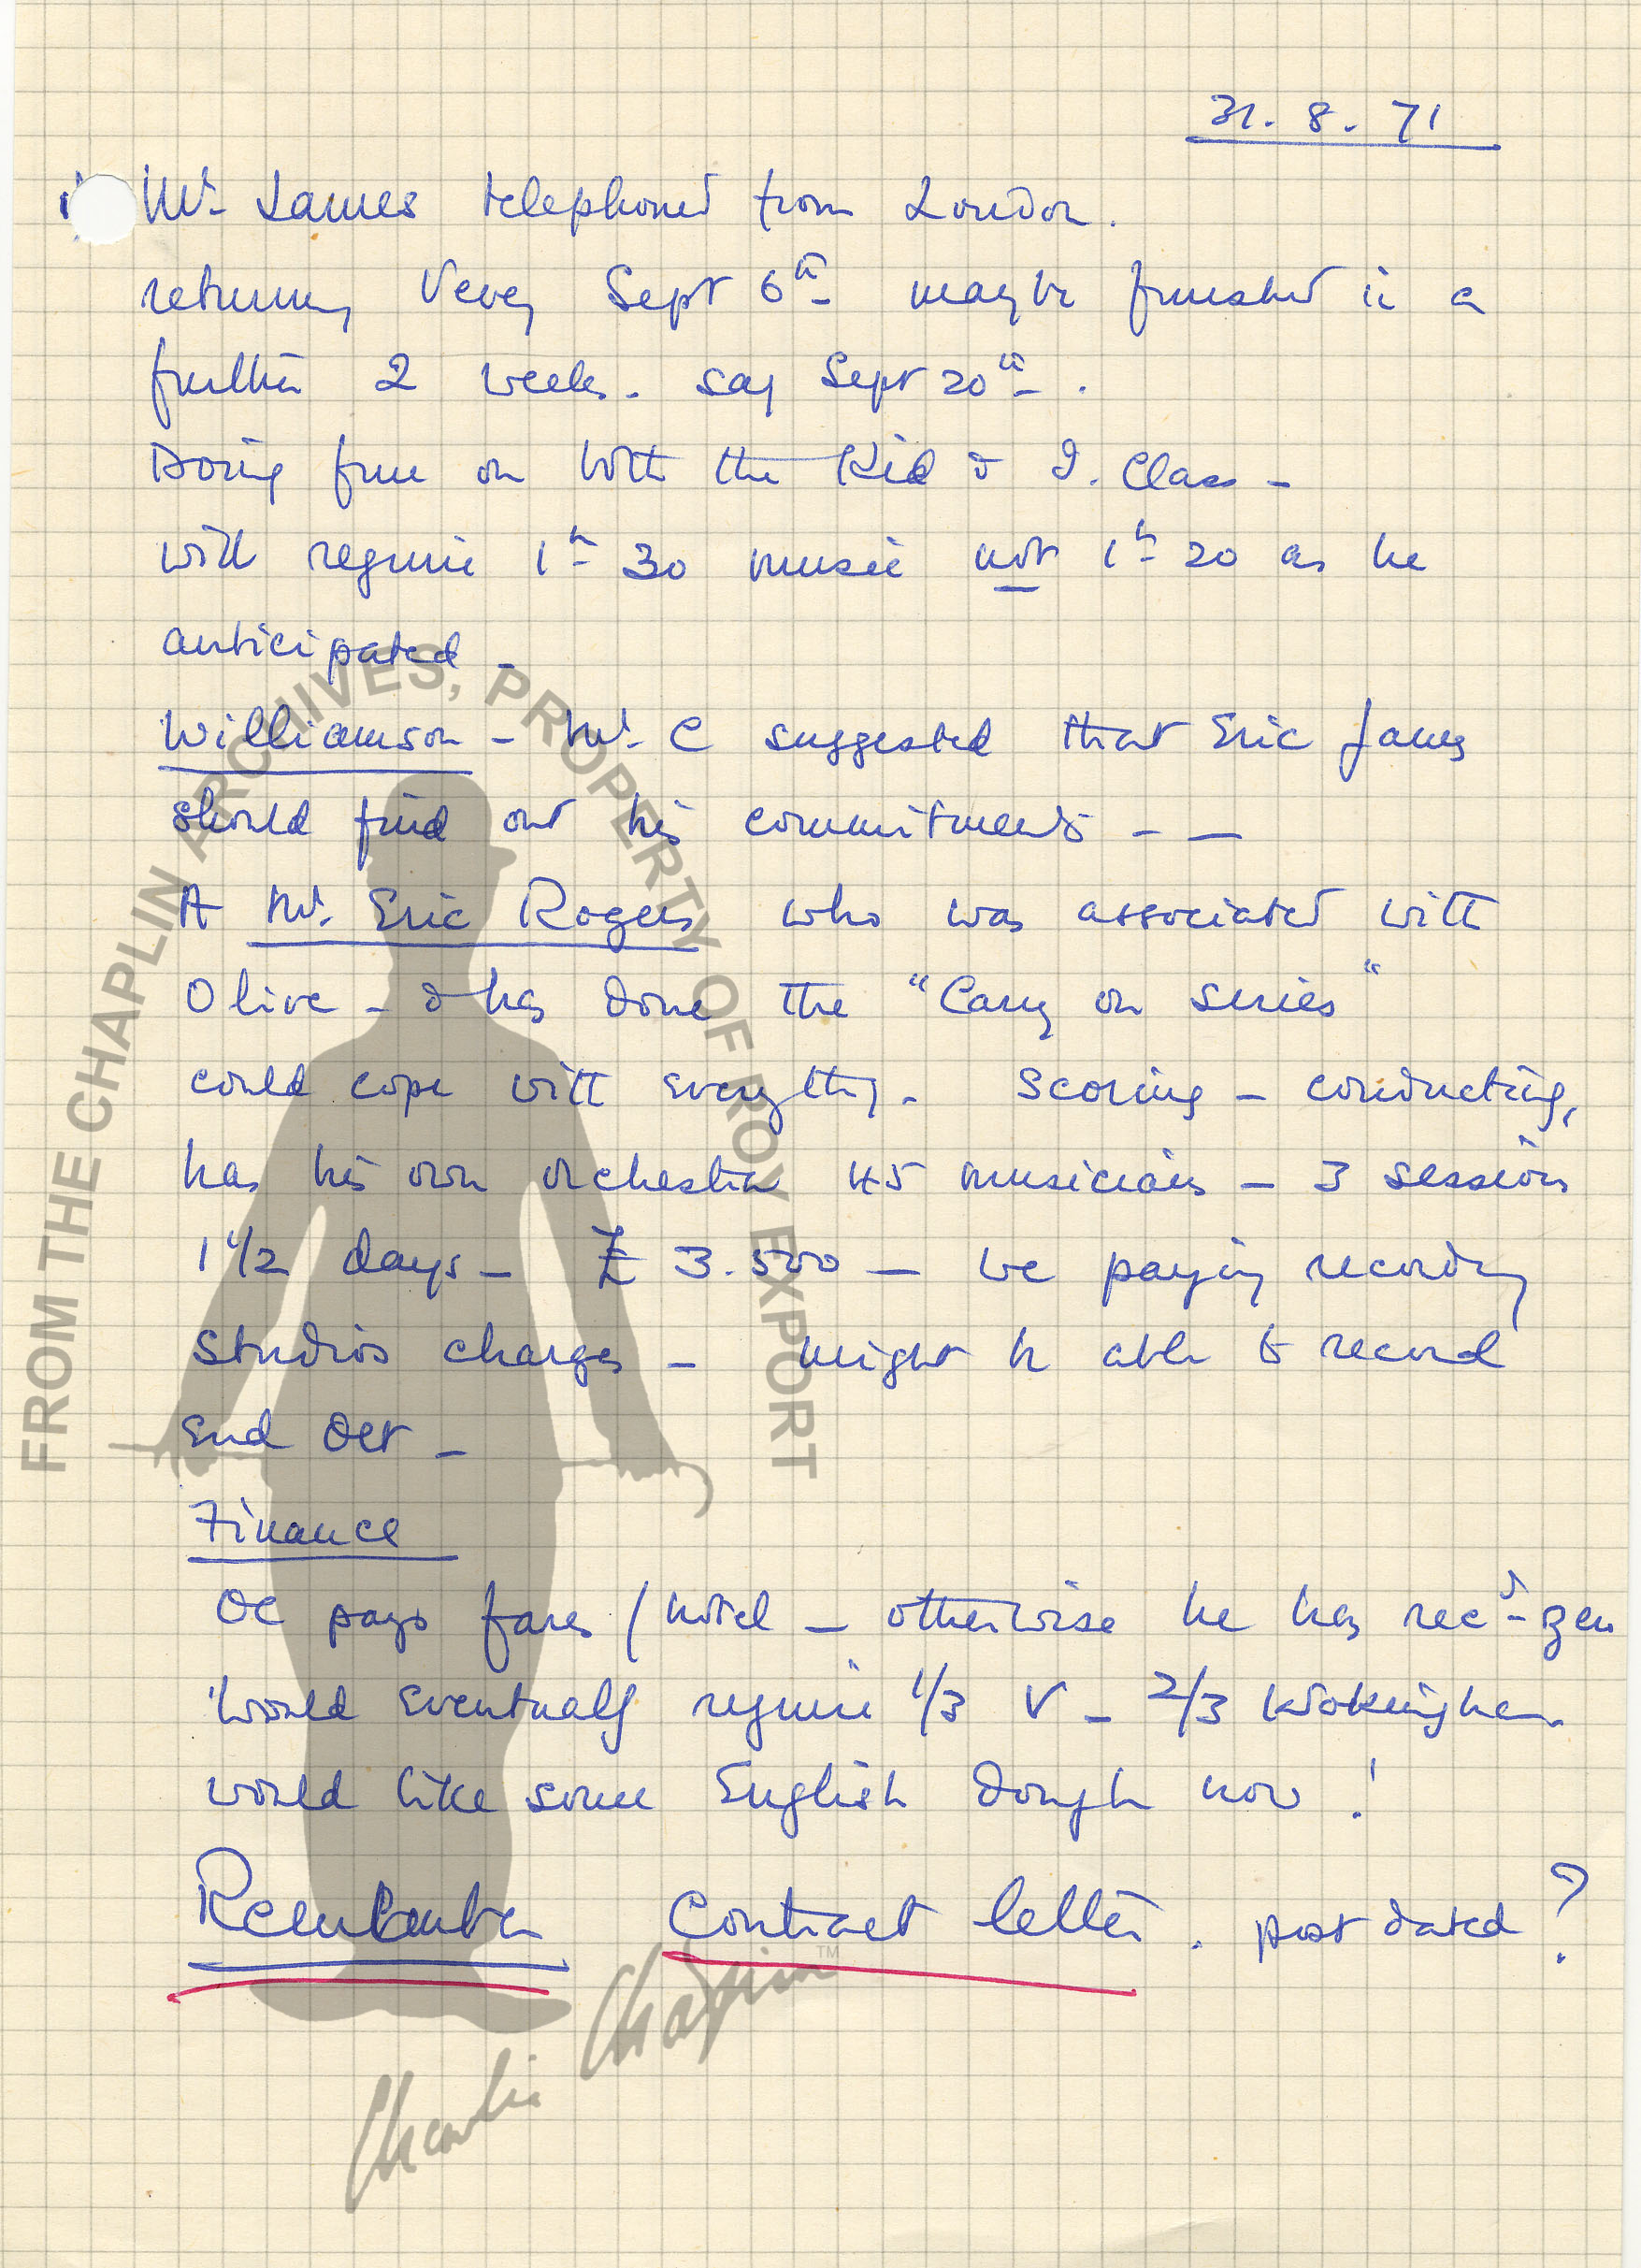 31. 8. 71
Mr. James telephoned from London.
returning Vevey Sept 6th maybe finished in a
further 2 weeks. say Sept 20th.
Doing fine on both the Kid & I. Class -
will require 1h 30 music not 1h 20 as he
anticipated -
Williamson - Mr. C suggested that Eric James
should find out his commitments - -
A Mr. Eric Rogers who was associated with
Olive - & has done the "Carry on series"
could cope with everything. Scoring - conducting,
has his own orchestra 45 musicians - 3 sessions
1 1/2 days - £ 3.500 - we paying recording
studios charges - might be able to record
End Oct -
Finance
OC pays fares / hotel - otherwise he has recd
would eventually require 1/3 V - 2/3 Wokingham
would like some English dough now !
Remember Contract letter. post dated ?
FROM THE CHAPLIN ARCHIVES, PROPERTY OF ROY EXPORT
Charlie Chaplin TM